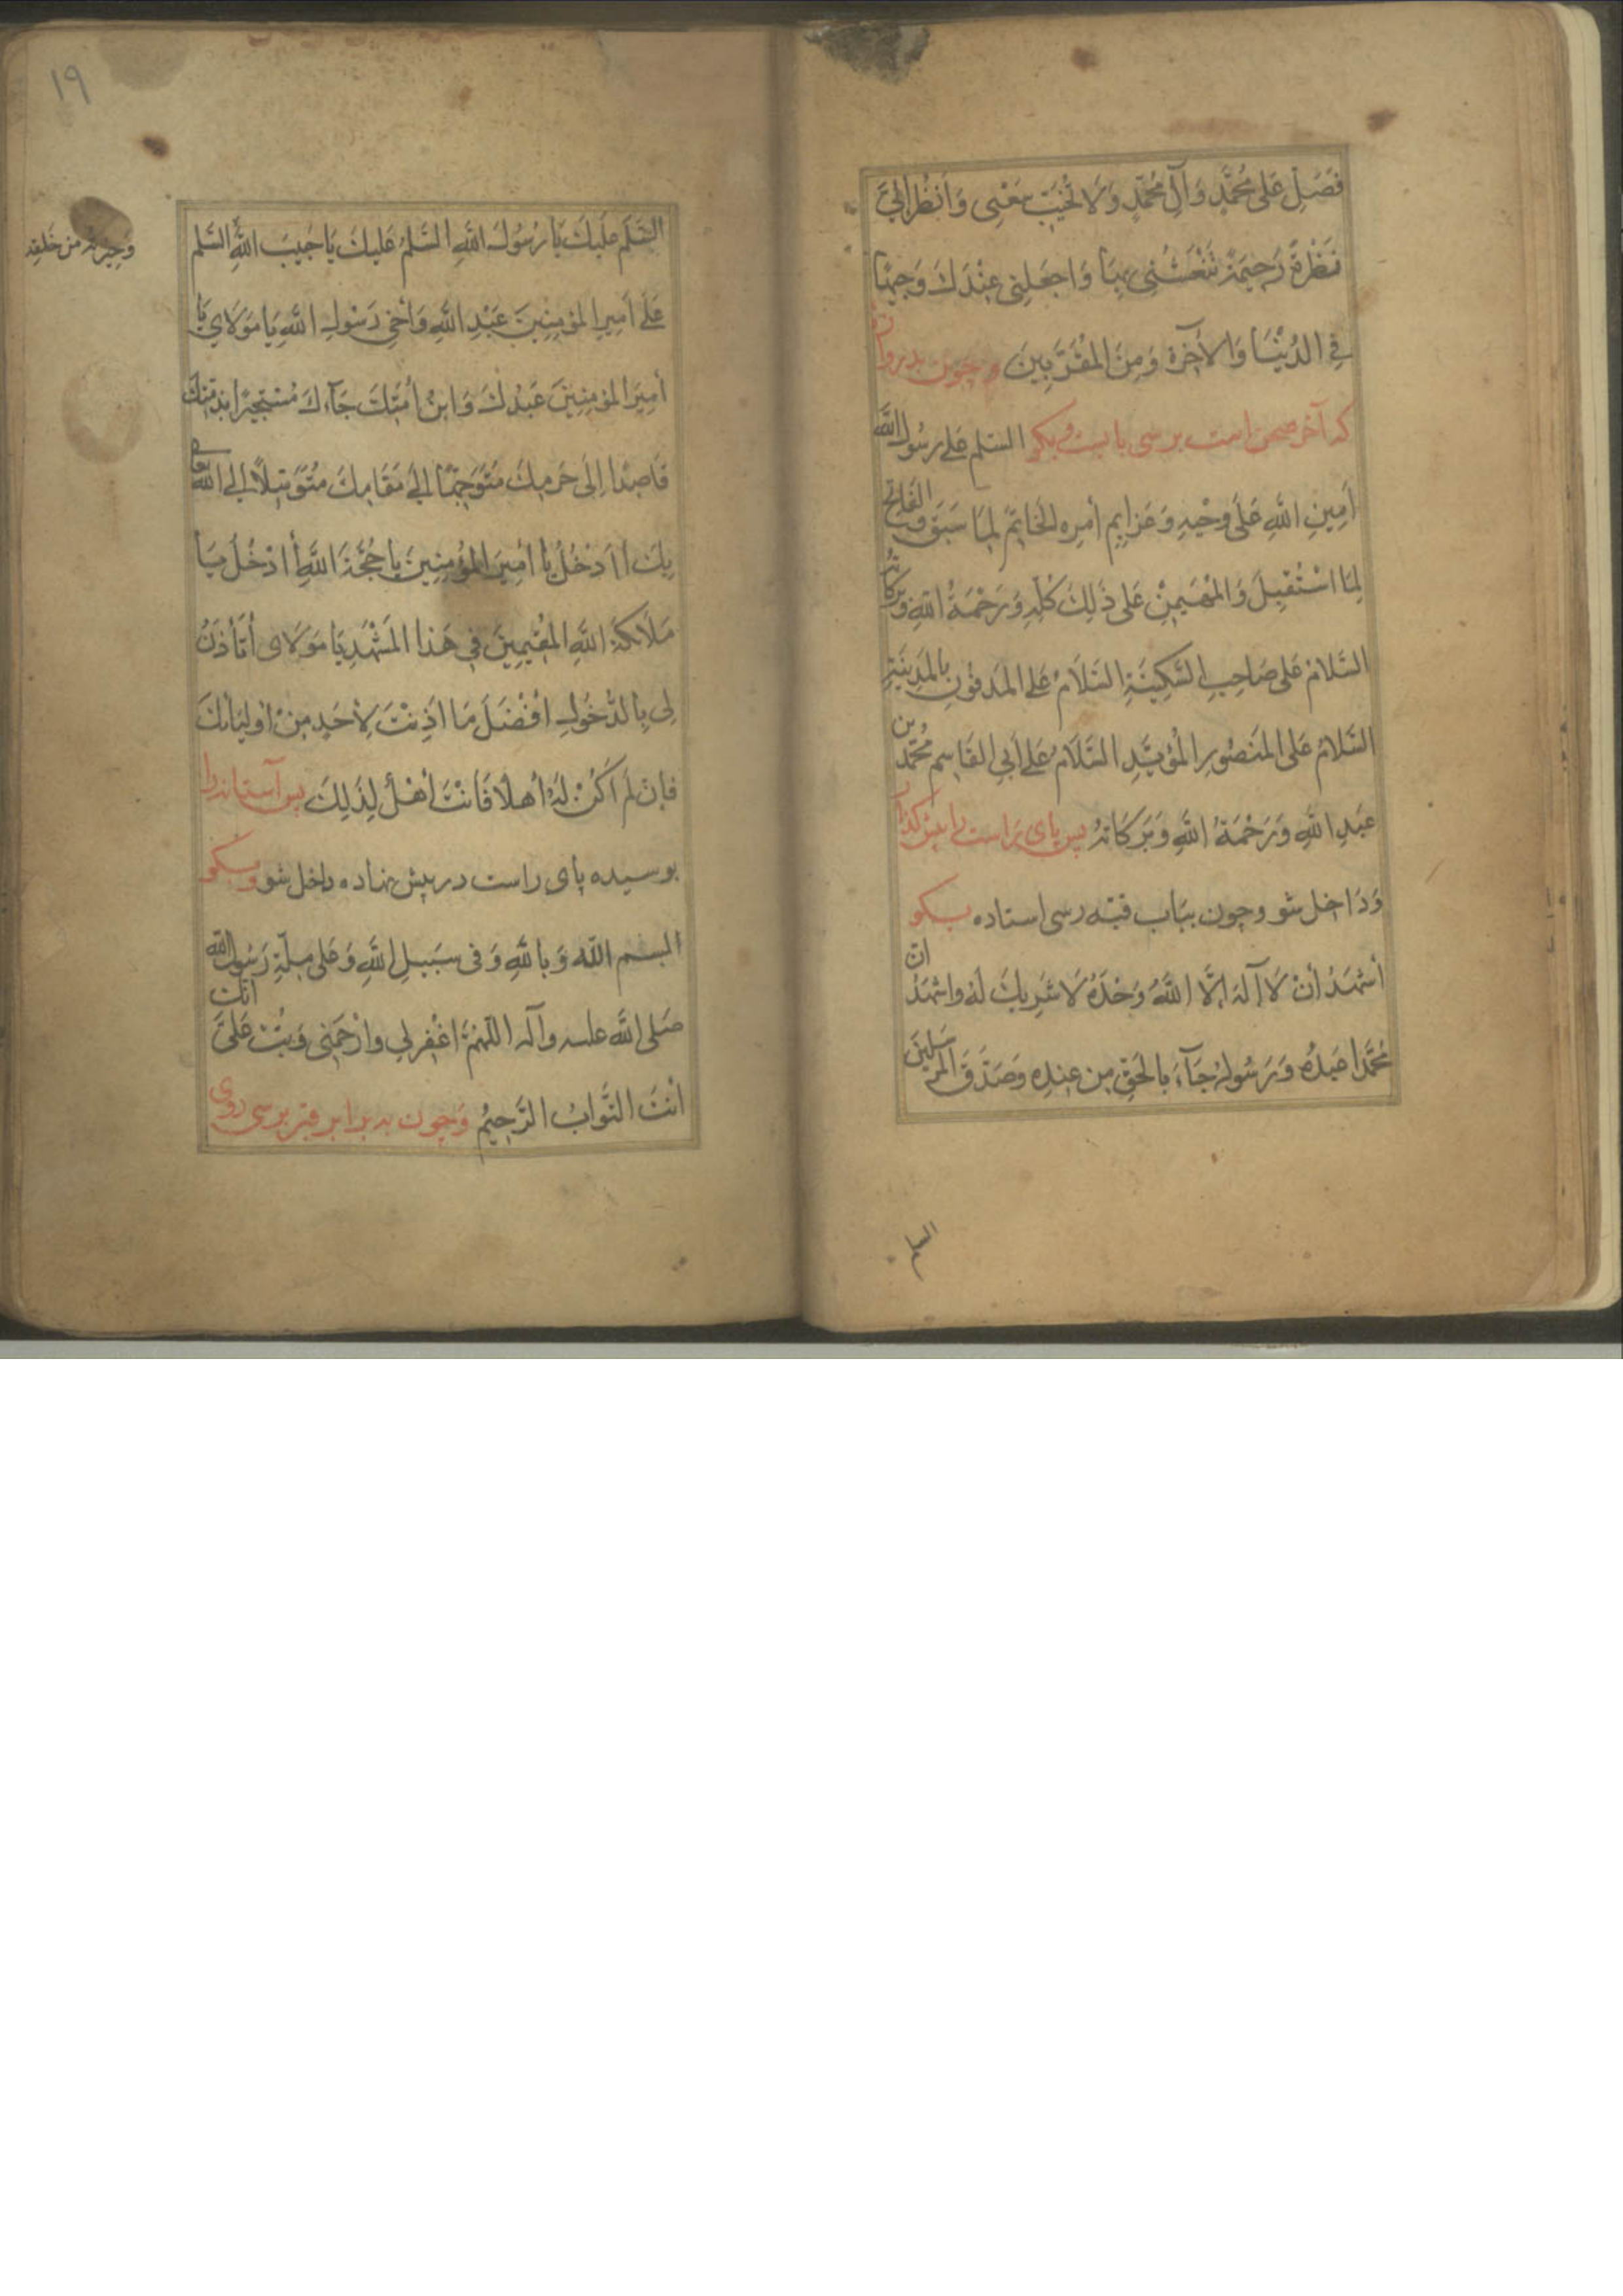 فَصَلِّ عَلى مُحَمَّدٍ وَآلِ مُحَمَّدٍ وَلا تُخَيِّبْ سَعْيى وَانْظُرْ اِلَيَّ
نَظْرَةً رَحِيمَةً تَنْعَشُنى بِهَا وَاجْعَلْنِى عِنْدَكَ وَجِيهًا
فِي الدُّنْيَا وَالآخِرَةِ وَمِنَ المُقَرَّبِينَ و چون بدروازه
که آخر صحن است برسی بایست و بگو السّلم عَلى رسُولِ اللَّهِ
اَمِينِ اللَّهِ عَلى وَحْيِهِ وَعَزايِمِ أمرِه الخَاتِمِ لِمَا سَبَقَ وَالفَاتِحِ
لِمَا اسْتُقْبِلَ وَالمُهَيمِنِ عَلى ذَلِكَ كُلِّهِ وَرَحْمَةُ اللَّهِ وَبَرَكَاتُهُ
السَّلامُ عَلى صَاحِبِ السَّكِينَةِ السَّلَامُ عَلَى المَدفُونِ بِالمَدِينَةِ
السَّلامُ عَلَى المَنصُورِ المُؤيَّدِ السَّلَامُ عَلى اَبي القَاسِمِ مُحَمَّدِ بن
عَبدِ اللَّهِ وَرَحْمَةُ اللَّهِ وَبَرَكَاتُهُ پس پای راست را پیش گذار
وَدَاخل شو وچون بباب قبّه رسی استاده بگو
أَشْهَدُ أَنْ لَا آلَهَ اِلَّا اللَّهُ وَحْدَهُ لَا شَرِيكَ لَهُ وَاشْهَدُ انّ
مُحَمَّدًا عَبدُهُ وَرَسُولُهُ جَآءَ بِالحَقِّ مِن عِندِه وَصَدَّقَ المُرسَلينَ
السلم
١٩
السَّلَم عَلَيكَ يَا رَسُولَ اللَّهِ السَّلمُ عَليكَ يَا حَبِيبَ اللَّهِ السَّلم
وَخِيرَتَهُ مِن خَلقِهِ
عَلَى اَمِيرِ المؤمِنِينَ عَبْدِ اللَّهِ وَأخِى رَسُولِ اللَّهِ يَا مَوَلايَ يَا
اَمِيرَ المؤمِنِينَ عَبْدُكَ وَابنُ اَمَتِكَ جَآءَكَ مُستَجِيرًا بِذِمَّتِكَ
قَاصِدًا اِلى حَرَمِكَ مُتَوَجِّهًا اِلى مَقَامِكَ مُتَوَسِّلًا اِلى اللَّهِ تعالى
بِكَ ااَدْخُلُ يَا اَمِيرَ المؤمِنِينَ يَا حُجَّةَ اللَّهِ أادْخُلُ يَا
مَلَائكَةَ اللَّهِ المُقِيمِينَ فِى هَذا المَشْهَدِ يَا مَوَلاى أتَأذَنُ
لِى بِالدُّخُولِ اَفْضَلَ مَا اَذِنْتَ لِاَحَدٍ مِنْ اَولِيَائكَ
فَاِن لَم اَكُنْ لَهُ أَهلًا فَاَنْتَ أَهْلٌ لِذَلِكَ پس آستانه را
بوسیده پای راست در پیش نهاده داخل شو وبگو
البسم اللّه وَبِاللَّهِ وَفى سَبِيلِ اللَّهِ وَعَلى مِلَّةِ رَسُولِ اللَّهِ
صَلى اللَّه عليه وآله اللّهُمَّ اغْفِر لِي وارْحَمنِى وَتُبْ عَلَيَّ انّكَ
اَنْتَ التَّوابُ الرَّحِيمُ وَچون به برابر قبر برسی روی